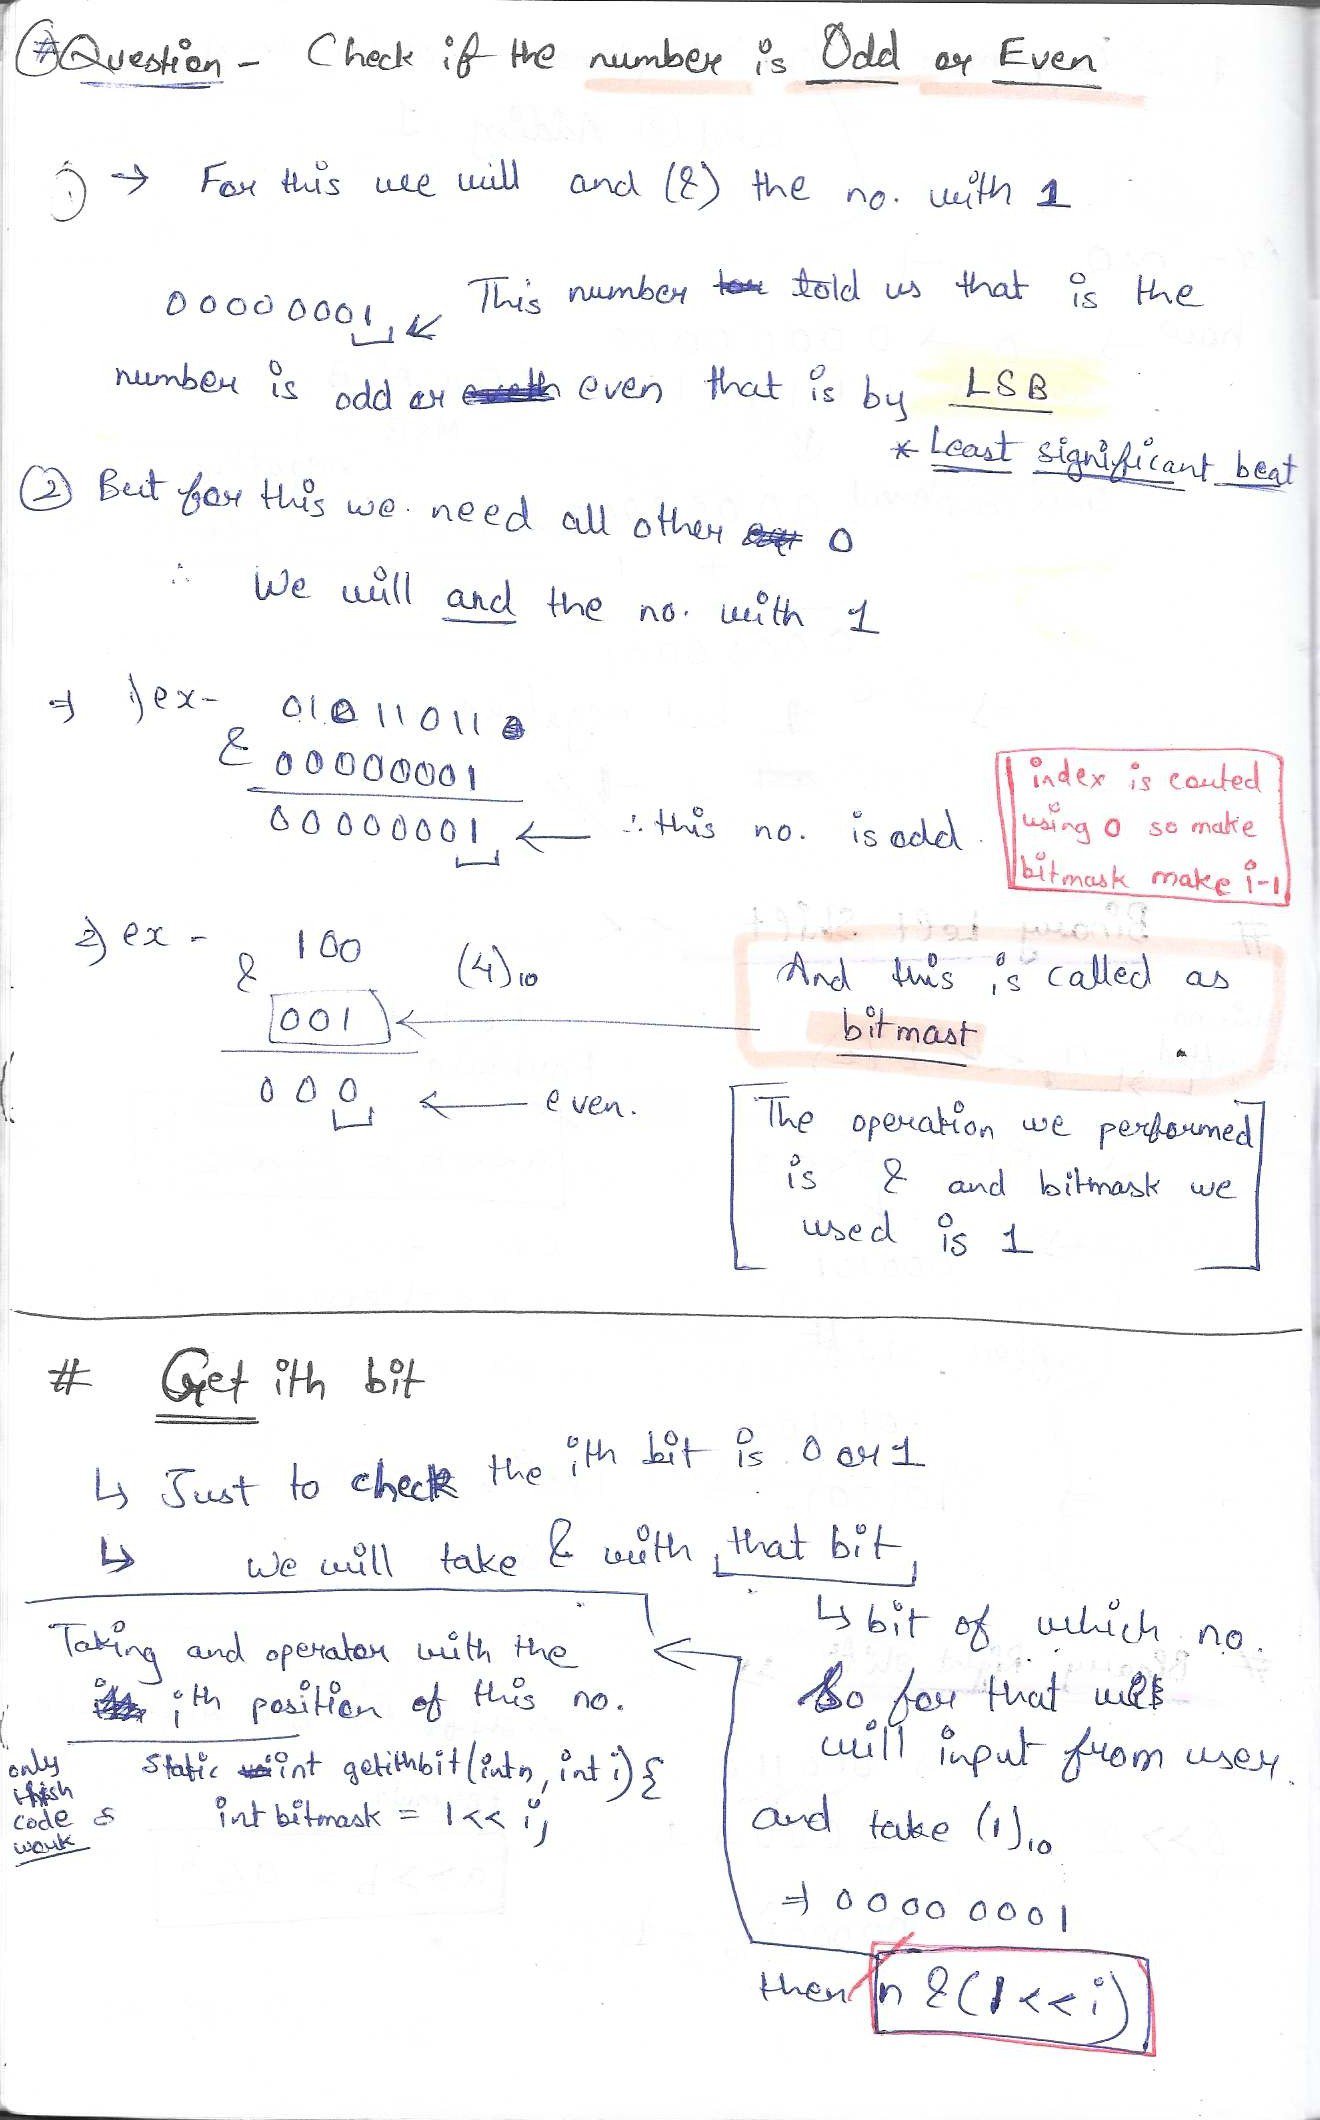 # Question - Check if the number is Odd or Even
1) → For this we will and (&) the no. with 1
00000001 ← This number told us that is the
number is odd or even that is by LSB
* Least significant beat
(2) But for this we need all other 0
∴ We will and the no. with 1
⇒ 1) ex- 01011011
& 00000001
00000001 ← ∴ this no. is odd.
index is couted
using 0 so make
bitmask make i-1
2) ex - 100 (4)10
& 001 ←
000 ← even.
And this is called as
bitmast
The operation we performed
is & and bitmask we
used is 1
# Get ith bit
↳ Just to check the ith bit is 0 or 1
↳ We will take & with that bit
↳ bit of which no.
So for that we
will input from user.
and take (1)10
⇒ 0000 0001
then n & (1<<i)
Taking and operator with the
ith position of this no.
only
this
code
work
static int getithbit(int n, int i) {
int bitmask = 1<< i;